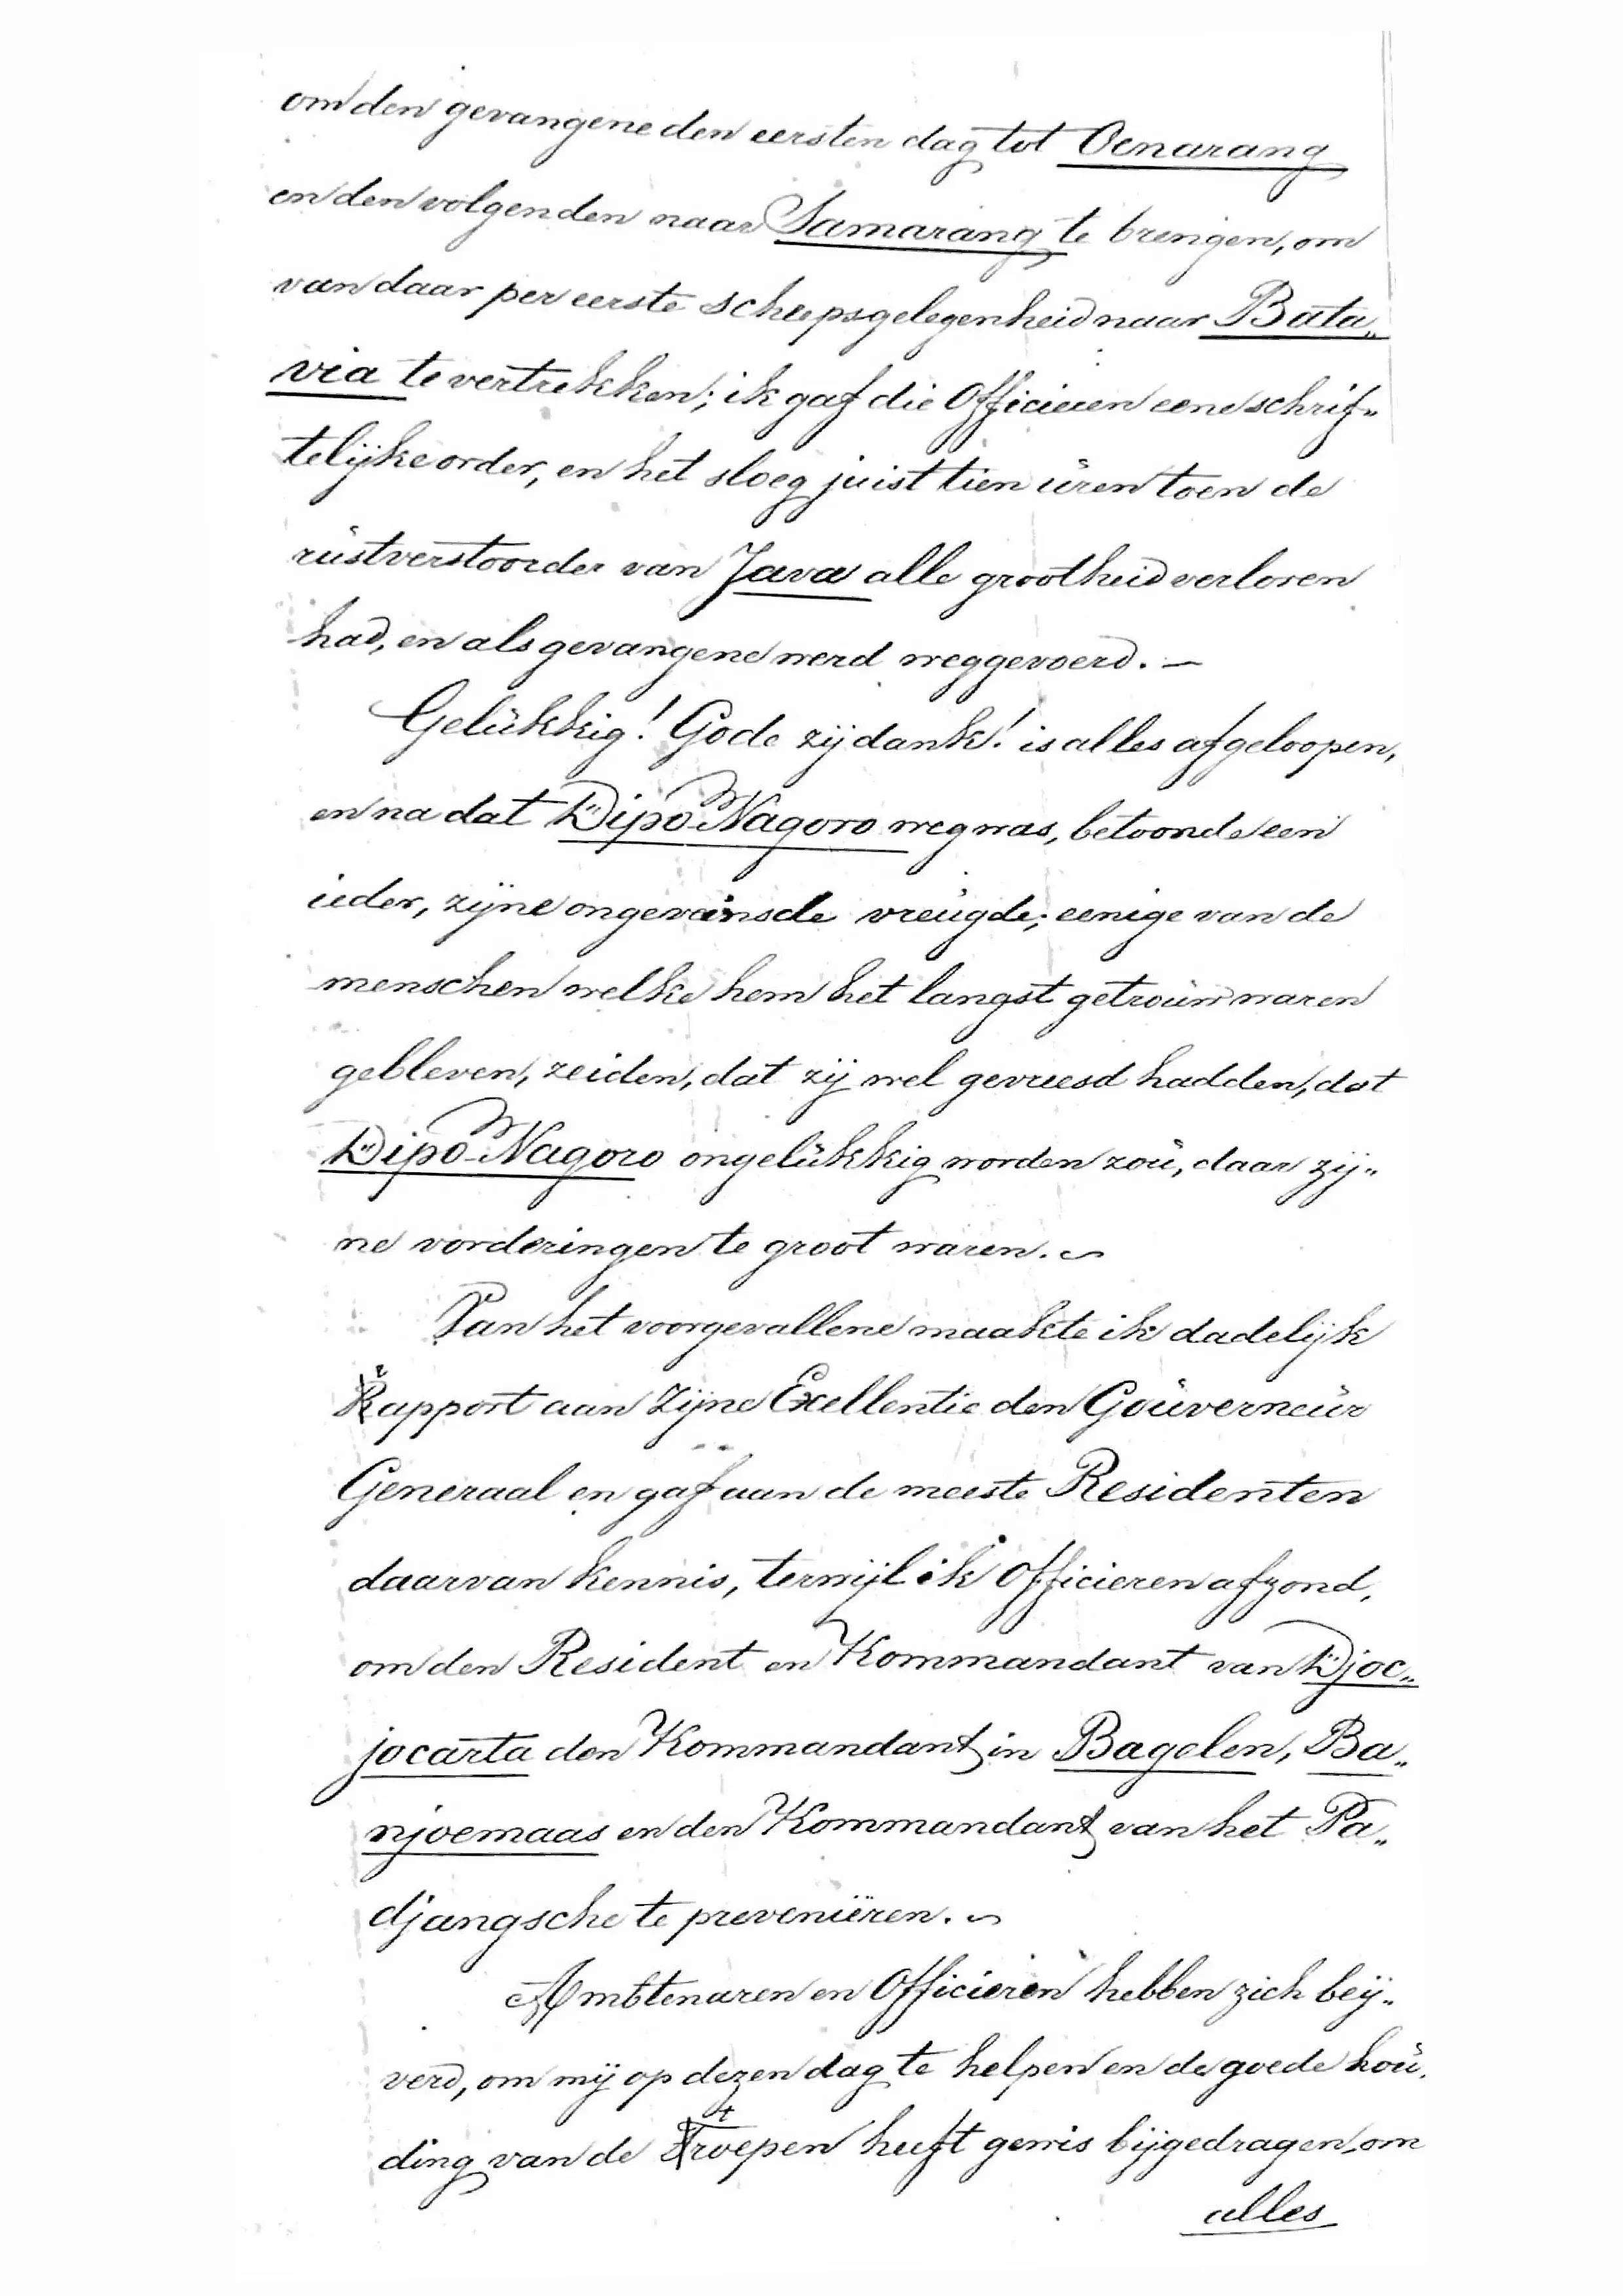 om den gevangene den eersten dag tot Oenarang
en den volgenden naar Samarang te brengen, om
van daar per eerste scheepsgelegenheid naar Bata„
via te vertrekken; ik gaf die Officieren eene schrif„
telijke order, en het sloeg juist tien uren toen de
rustverstoorder van Java alle grootheid verloren
had, en als gevangene werd weggevoerd. —
Gelukkig! Gode zij dank! is alles afgeloopen,
en na dat Dipo Nagoro weg was, betoonde een
ieder, zijne ongeveinsde vreugde; eenige van de
menschen welke hem het langst getrouw waren
gebleven, zeiden, dat zij wel gevreesd hadden, dat
Dipo-Nagoro ongelukkig worden zou, daar zij„
ne vorderingen te groot waren. ~
Van het voorgevallene maakte ik dadelijk
Rapport aan Zijne Excellentie den Gouverneur
Generaal en gaf aan de meeste Residenten
daarvan kennis, terwijl ik Officieren afzond,
om den Resident en Kommandant van Djoc„
jocarta den Kommandant in Bagelen, Ba„
njoemaas en den Kommandant van het Pa„
djangsche te preveniëren. ~
Ambtenaren en Officieren hebben zich beij„
verd, om mij op dezen dag te helpen en de goede hou„
ding van de troepen heeft gewis bijgedragen, om
alles